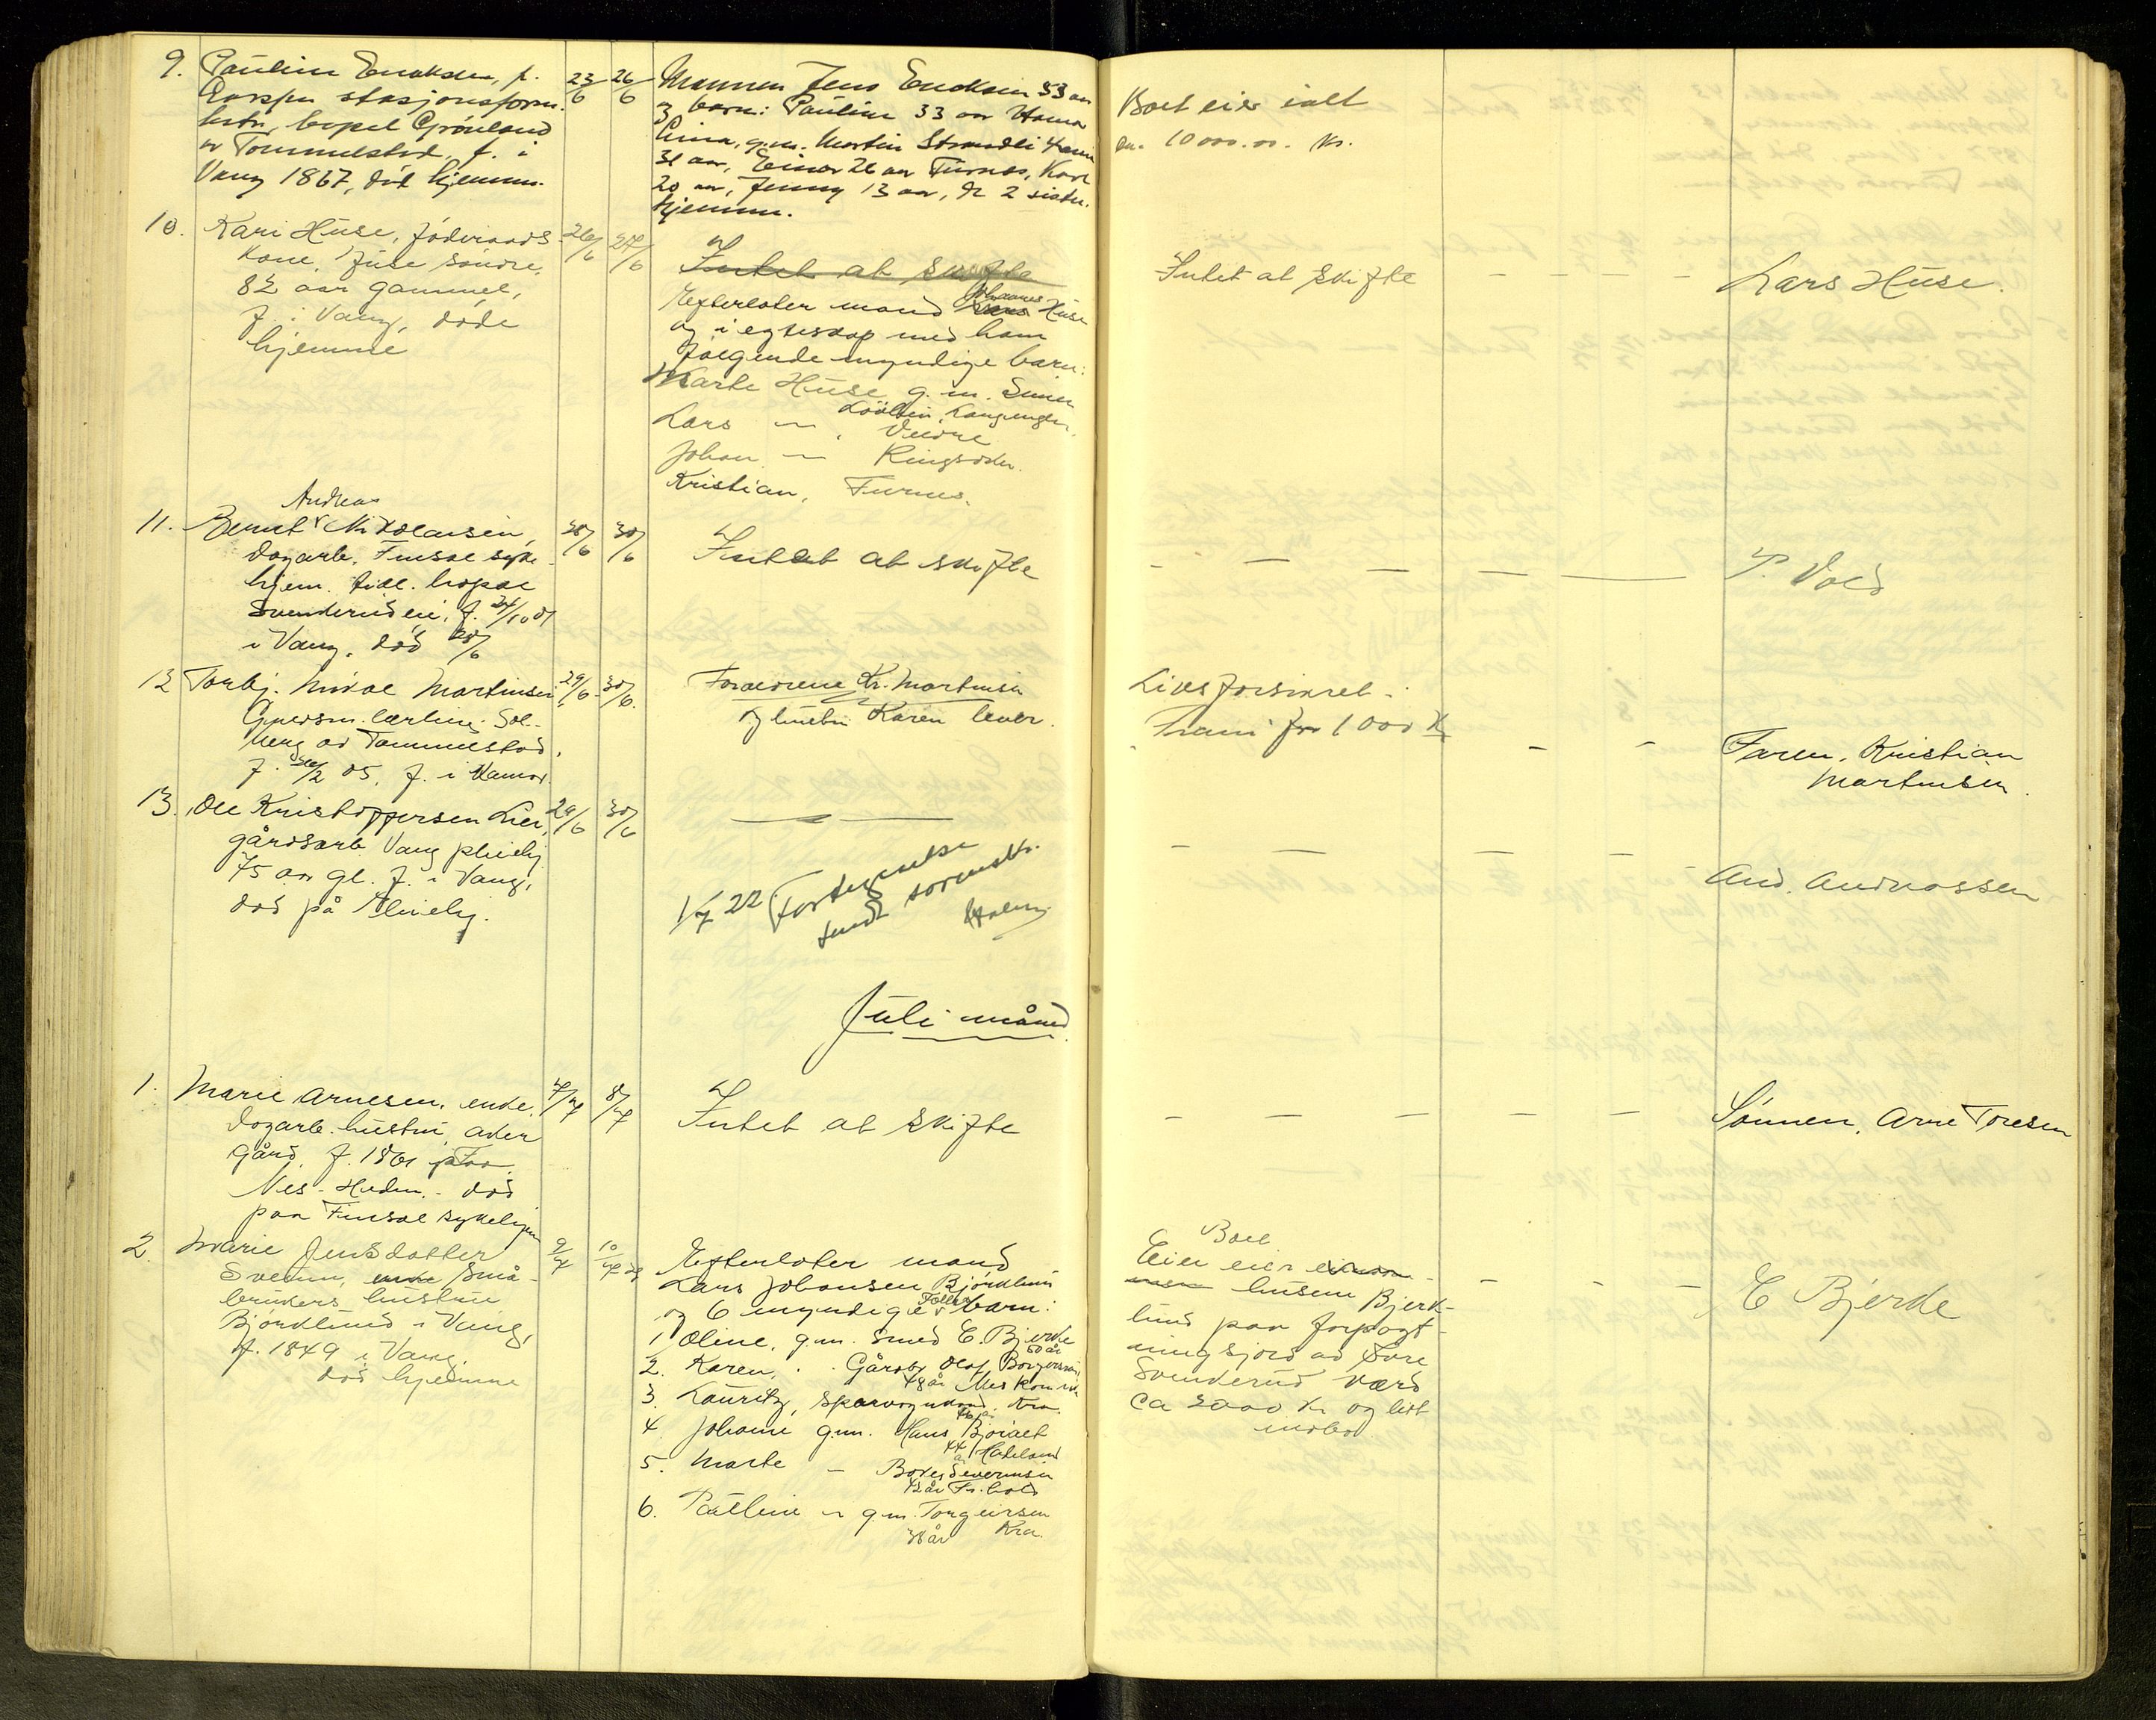 9. Pauline Eriksen, f.
stasjonsform.
bopel Grönland
av Tommelstad, f. i
Vang 1867, död hjemme.
23/6 26/6
Mannen Jens Eriksen 53 aar
og barn: Pauline 33 aar Hamar
g.m. Martin
31 aar, Einar 26 aar Furnes, Karl
20 aar, Jenny 13 aar, de 2 siste
hjemme.
Boet eier ialt
ca. 10000.00. kr.
10. Kari Huse, föderaads
kone, Huse söndre,
82 aar gammel,
f. i Vang, döde
hjemme
26/6 27/6
Intet at skifte
Efterlater mand Johannes Huse
og i egteskap med ham
følgende myndige barn:
Marte Huse g. m. Simen
Lars — , Veidre
Johan — Ringsaker.
Kristian, Furnes.
Intet at skifte — — — Lars Huse.
11. Bernt Andreas Nikolaisen,
dagarb. Finsal syke-
hjem. tidl. bopæl
Svenderudeie, f. 24/10 01
i Vang, död 28/6
30/6 30/6
Intet at skifte
— — — — — P. Vold
12 Torbj. Nikol Martinsen
lærling. Sol-
berg av Tommelstad,
f. /2 05, f. i Hamar.
29/6 30/6.
Forældrene Kr. Martinsen
og hustru Karen lever.
Livsforsikret i
Trani for 1000 K
— — Faren, Kristian
Martinsen.
13. Ole Kristoffersen Lier,
gårdsarb. Vang pleiehj.
75 aar gl. f. i Vang,
död på Pleiehj.
29/6 30/6
— —
— — — — And. Andreassen
1/7 22 Fortegnelse
sendt sorenskr.
Juli måned.
1. Marie Arnesen, enke,
dagarb. hustru, aker
gård, f. 1861 på
Nes - Hedm. - död
paa Finsal sykehjem
7/7 8/7
Intet at skifte
— — — — — Sönnen, Arne Toresen
2 Marie Jensdatter
Sveum, enke Små-
brukers hustru
Björklund i Vang,
f. 1849 i Vang,
död hjemme
9/7 10/7
Efterlater mand
Lars Johansen Björklund
og 6 myndige Fælles barn:
1 Oline, g.m. Smed E. Bjerke
50 år
2. Karen, " Gårdbr. Olaf Borgersen,
48 år Nes
3. Lauritz, Kra.
46 år
4. Johanne g.m. Hans
44 år Hadeland
5. Marte — Severinsen
42 år
6. Pauline — g.m. Torgeirsen
38 år Kra.
Boet
Eier eier
husene Bjerk-
lund paa forpagt-
ningsjord av
Svenderud værd
ca 2000 kr og litt
indbo
— — — E Bjerke